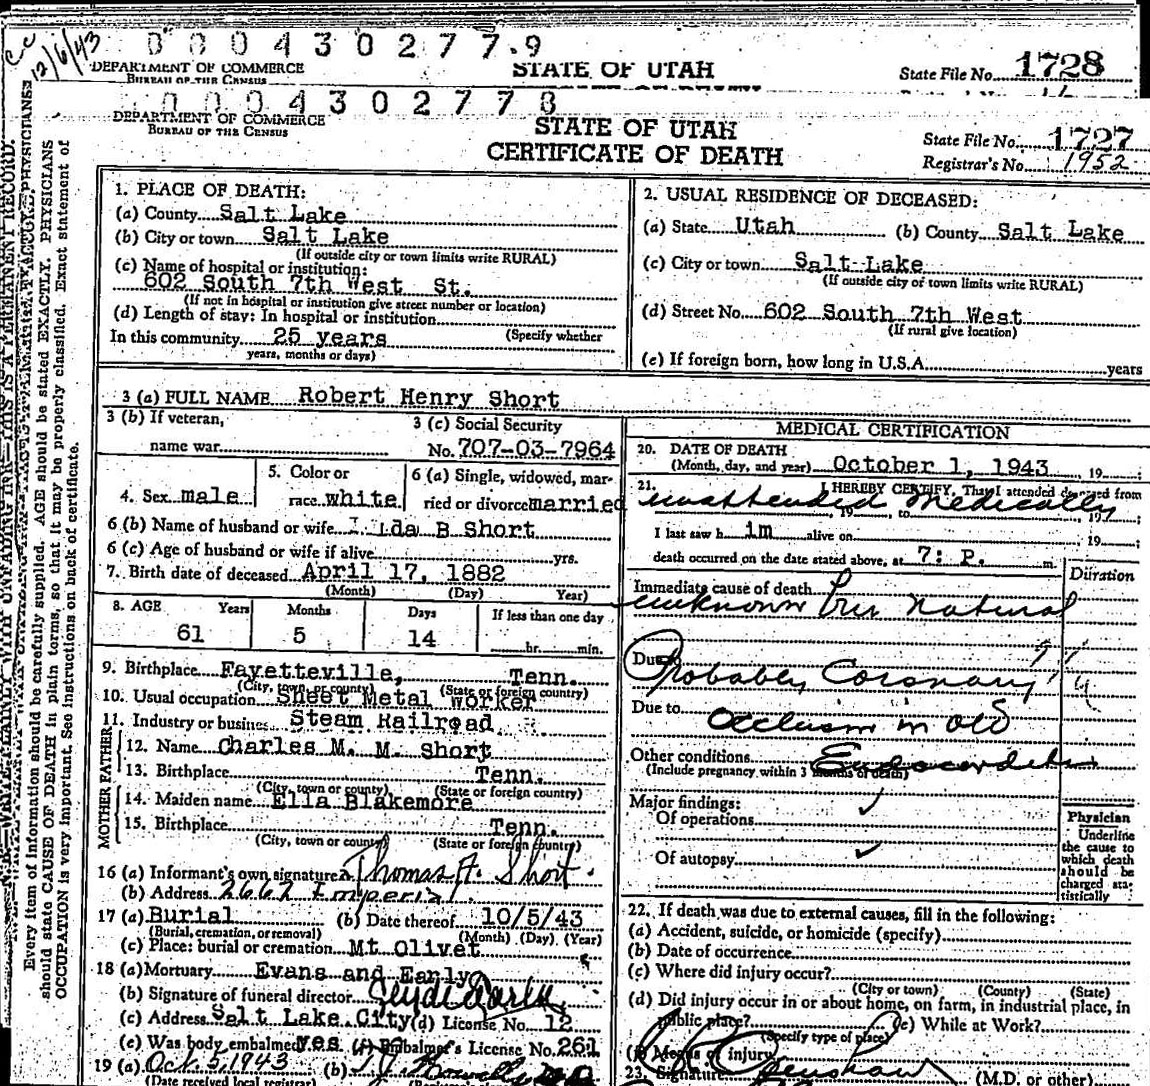 C-C
12/6/43
0 0 0 4 3 0 2 7 7.9
DEPARTMENT OF COMMERCE
BUREAU OF THE CENSUS
STATE OF UTAH
State File No. 1728
0 0 0 4 3 0 2 7 7 8
DEPARTMENT OF COMMERCE
BUREAU OF THE CENSUS
STATE OF UTAH
CERTIFICATE OF DEATH
State File No. 1727
Registrar's No. 1952
1. PLACE OF DEATH:
(a) County Salt Lake
(b) City or town Salt Lake
(If outside city or town limits write RURAL)
(c) Name of hospital or institution:
602 South 7th West St.
(If not in hospital or institution give street number or location)
(d) Length of stay: In hospital or institution
(Specify whether
In this community 25 years
years, months or days)
2. USUAL RESIDENCE OF DECEASED:
(a) State Utah (b) County Salt Lake
(c) City or town Salt Lake
(If outside city or town limits write RURAL)
(d) Street No. 602 South 7th West
(If rural give location)
(e) If foreign born, how long in U.S.A. years
3 (a) FULL NAME Robert Henry Short
3 (b) If veteran,
name war
3 (c) Social Security
No. 707-03-7964
4. Sex male
5. Color or
race white
6 (a) Single, widowed, mar-
ried or divorce married
6 (b) Name of husband or wife Ida B Short
6 (c) Age of husband or wife if alive yrs.
7. Birth date of deceased April 17, 1882
(Month) (Day) Year)
8. AGE Years Months Days If less than one day
61 5 14 hr. min.
9. Birthplace Fayetteville, Tenn.
(City, town, or county) (State or foreign country)
10. Usual occupation Sheet Metal Worker
11. Industry or busines Steam Railroad
FATHER
12. Name Charles M. M. Short
13. Birthplace Tenn.
(City, town or county) (State or foreign country)
MOTHER
14. Maiden name Ella Blakemore
15. Birthplace Tenn.
(City, town or county) (State or foreign country)
16 (a) Informant's own signature Thomas A. Short
(b) Address 2662 Imperial
17 (a) Burial (b) Date thereof 10/5/43
(Burial, cremation, or removal) (Month) (Day) (Year)
(c) Place: burial or cremation Mt Olivet
18 (a) Mortuary Evans and Early
(b) Signature of funeral director Clyde Early
(c) Address Salt Lake City (d) License No. 12
(e) Was body embalmed yes (f) Embalmer's License No. 261
19 (a) Oct. 5, 1943 (b)
(Date received local registrar)
MEDICAL CERTIFICATION
20. DATE OF DEATH
(Month, day, and year) October 1, 1943, 19 ;
21. I HEREBY CERTIFY, That I attended deceased from
unattended medically
, 19 , to , 19 ;
I last saw h im alive on , 19 ;
death occurred on the date stated above, at 7: P. m.
Duration
Immediate cause of death
unknown but natural
Due to
Probably Coronary
Due to
occlusion in old
Other conditions Endocarditis
(Include pregnancy within 3 months of death)
Major findings:
Of operations
Of autopsy
Physician
Underline
the cause to
which death
should be
charged sta-
tistically
22. If death was due to external causes, fill in the following:
(a) Accident, suicide, or homicide (specify)
(b) Date of occurrence
(c) Where did injury occur?
(City or town) (County) (State)
(d) Did injury occur in or about home, on farm, in industrial place, in
public place? (e) While at Work?
(Specify type of place)
(f) Means of injury
23. Signature (M.D. or other)
N. B.—WRITE PLAINLY WITH UNFADING INK—THIS IS A PERMANENT RECORD.
Every item of information should be carefully supplied. AGE should be stated EXACTLY. PHYSICIANS
should state CAUSE OF DEATH in plain terms, so that it may be properly classified. Exact statement of
OCCUPATION is very important. See instructions on back of certificate.